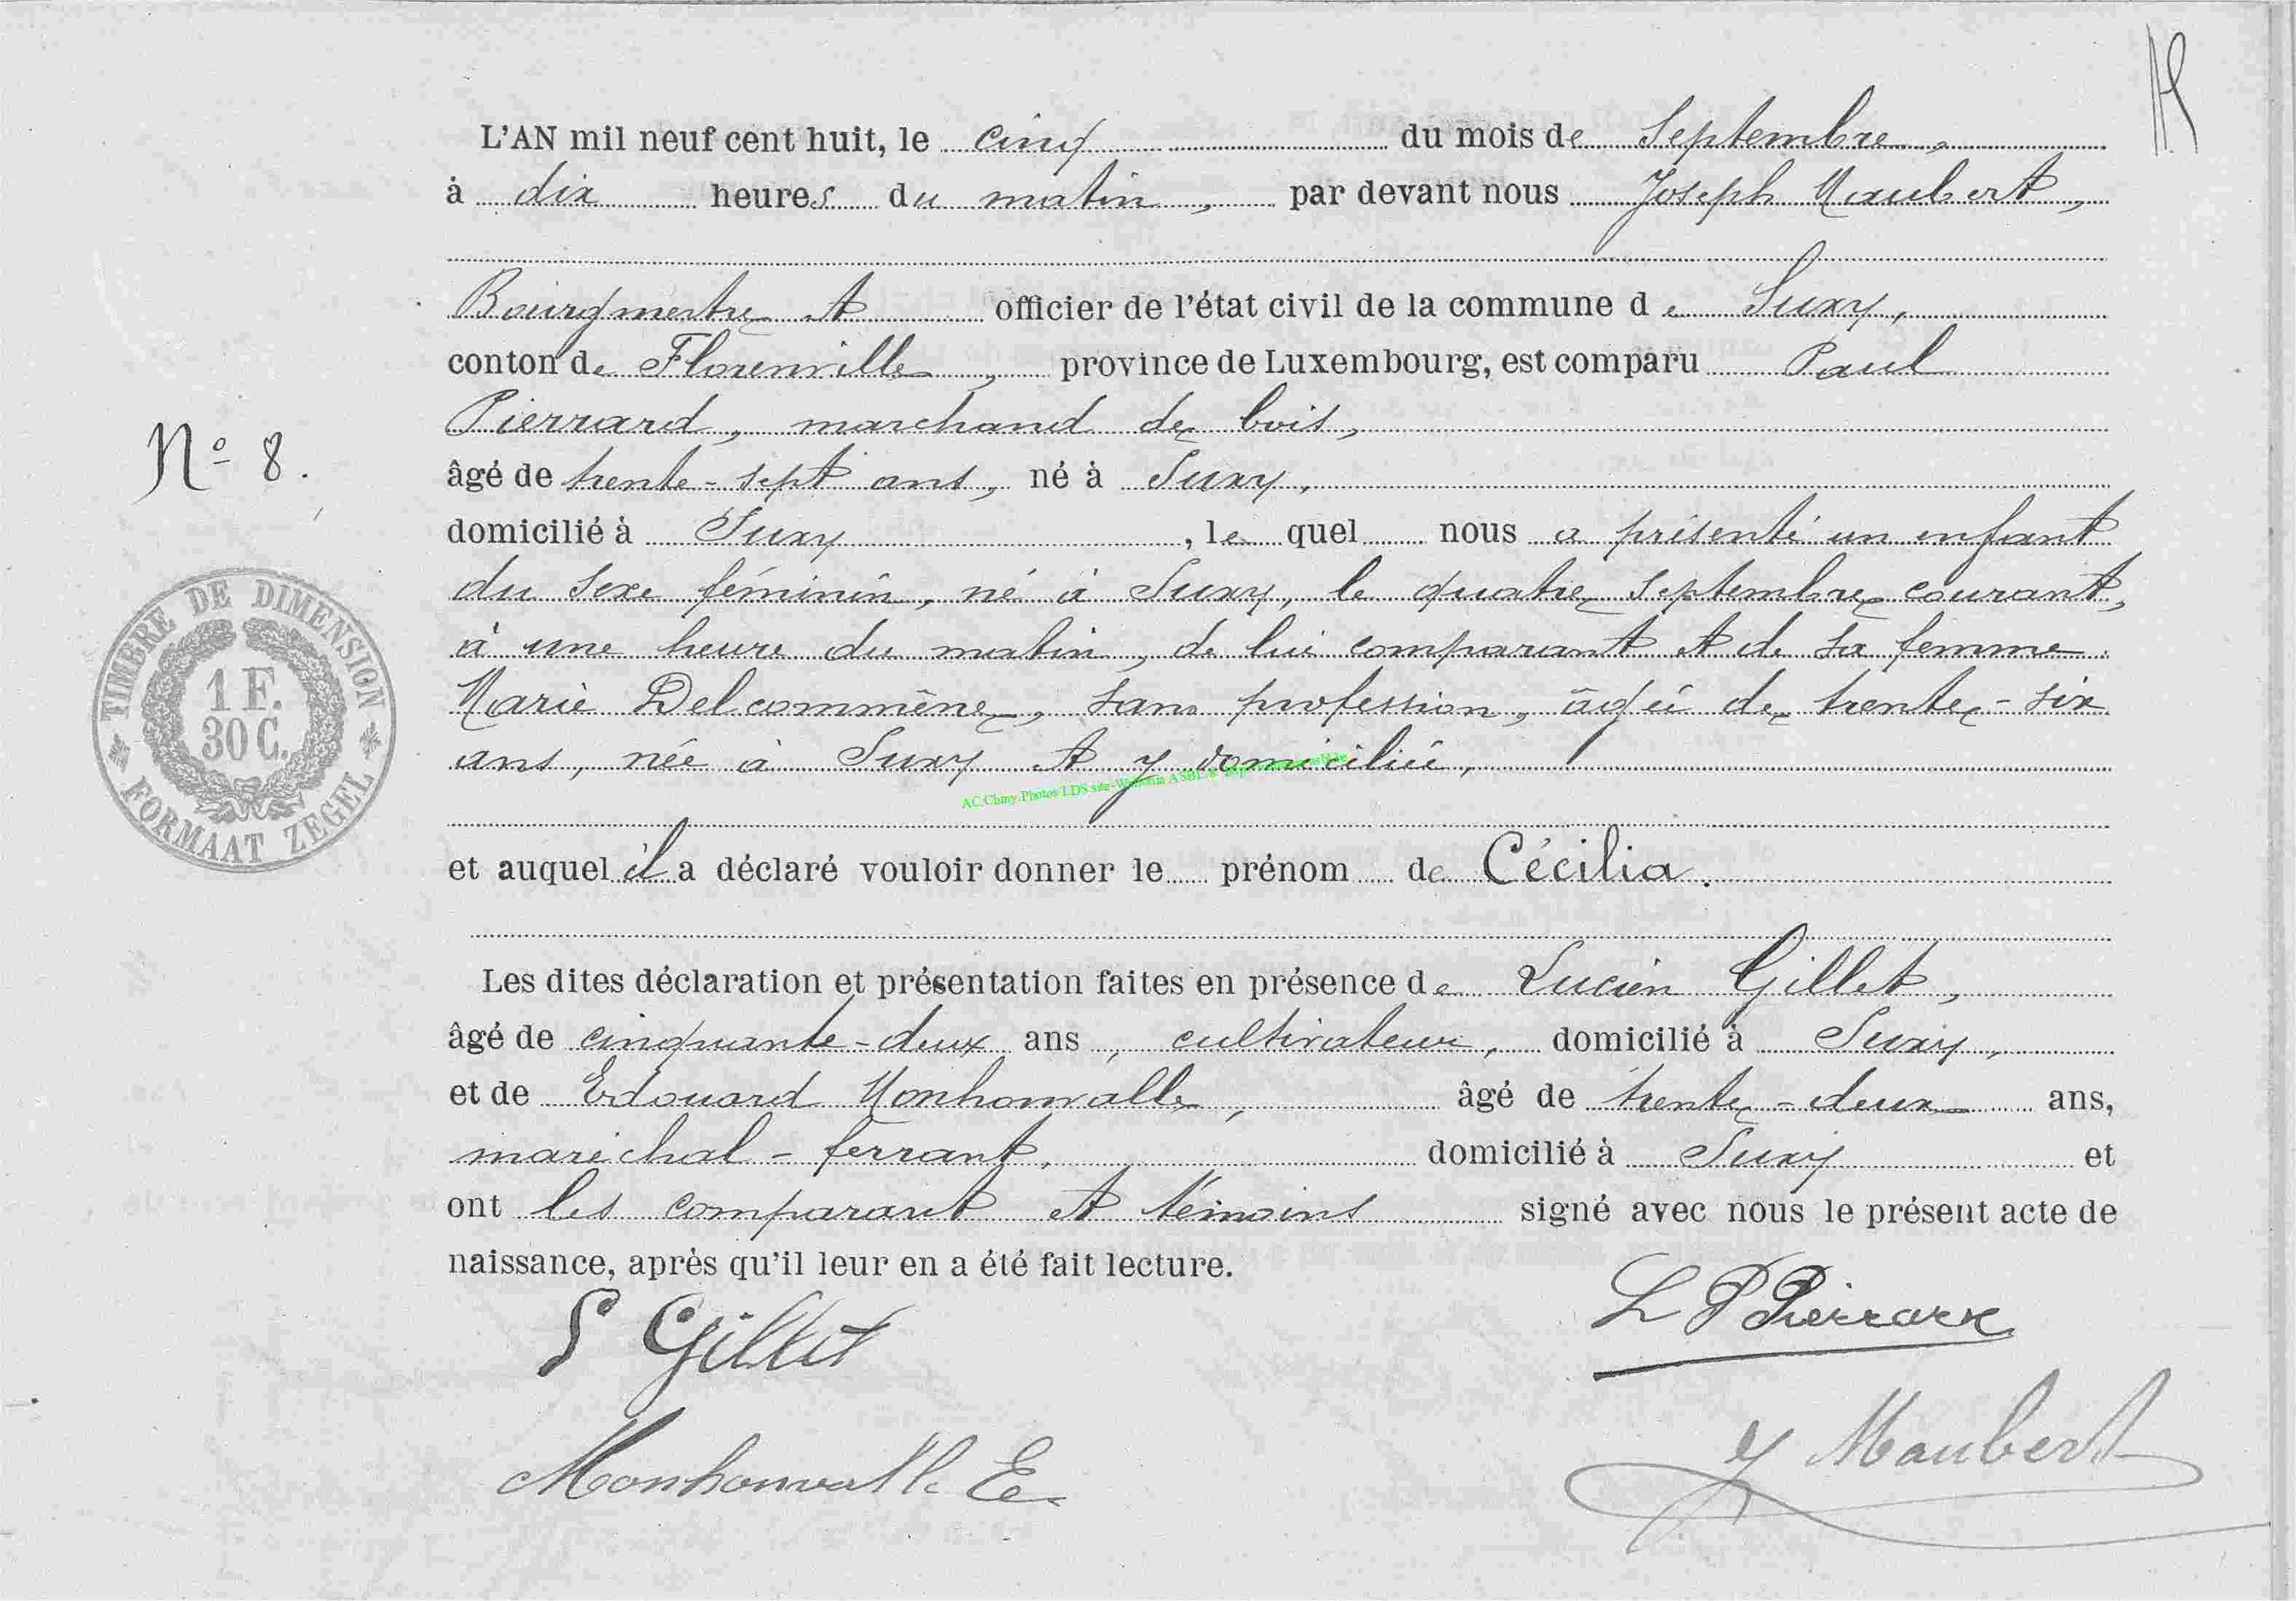 L'AN mil neuf cent huit, le cinq du mois de Septembre,
à dix heures du matin, par devant nous Joseph Maubert,
Bourgmestre et officier de l'état civil de la commune de Suxy,
conton de Florenville, province de Luxembourg, est comparu Paul
Pierrard, marchand de bois,
âgé de trente-sept ans, né à Suxy,
domicilié à Suxy, le quel nous a présenté un enfant
du sexe féminin, né à Suxy, le quatre Septembre courant,
à une heure du matin, de lui comparant et de sa femme
Marie Delcommène, sans profession, âgée de trente-six
ans, née à Suxy et y domiciliée,
AC.Chiny-Photos LDS site
et auquel il a déclaré vouloir donner le prénom de Cécilia.
Les dites déclaration et présentation faites en présence de Lucien Gillet,
âgé de cinquante-deux ans, cultivateur, domicilié à Suxy,
et de Edouard Monhonvalle, âgé de trente-deux ans,
maréchal-ferrant, domicilié à Suxy et
ont les comparant et témoins signé avec nous le présent acte de
naissance, après qu'il leur en a été fait lecture.
Gillet
L P Pierrard
Monhonvalle E
J Maubert
N° 8.
TIMBRE DE DIMENSION
1 F.
30 C.
FORMAAT ZEGEL